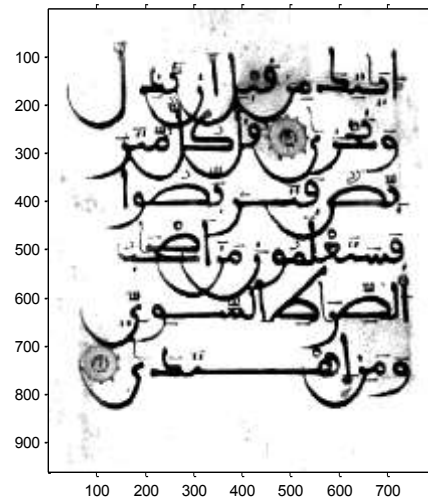 100
200
300
400
500
600
700
800
900
ايتك من قبل ان نذل
ونخزى قل كل متر
بص فتربصوا
فستعلمون من اصحب
الصرط السوى
ومن اهتدى
100 200 300 400 500 600 700